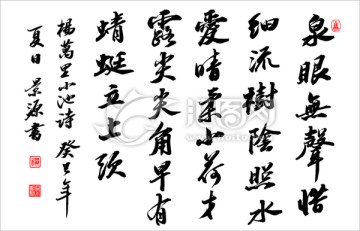 泉眼無聲惜
細流樹陰照水
愛晴柔小荷才
露尖尖角早有
蜻蜓立上頭
楊萬里小池詩 癸丑年
夏日 景源書